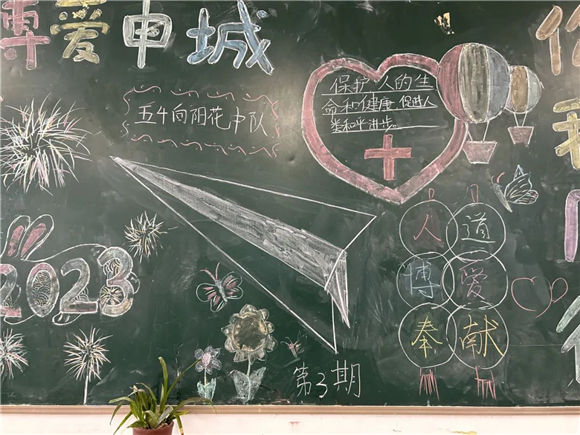 博爱申城
五4向阳花中队
保护人的生
命和健康 促进人
类和平进步
2023
人道
博爱
奉献
第3期